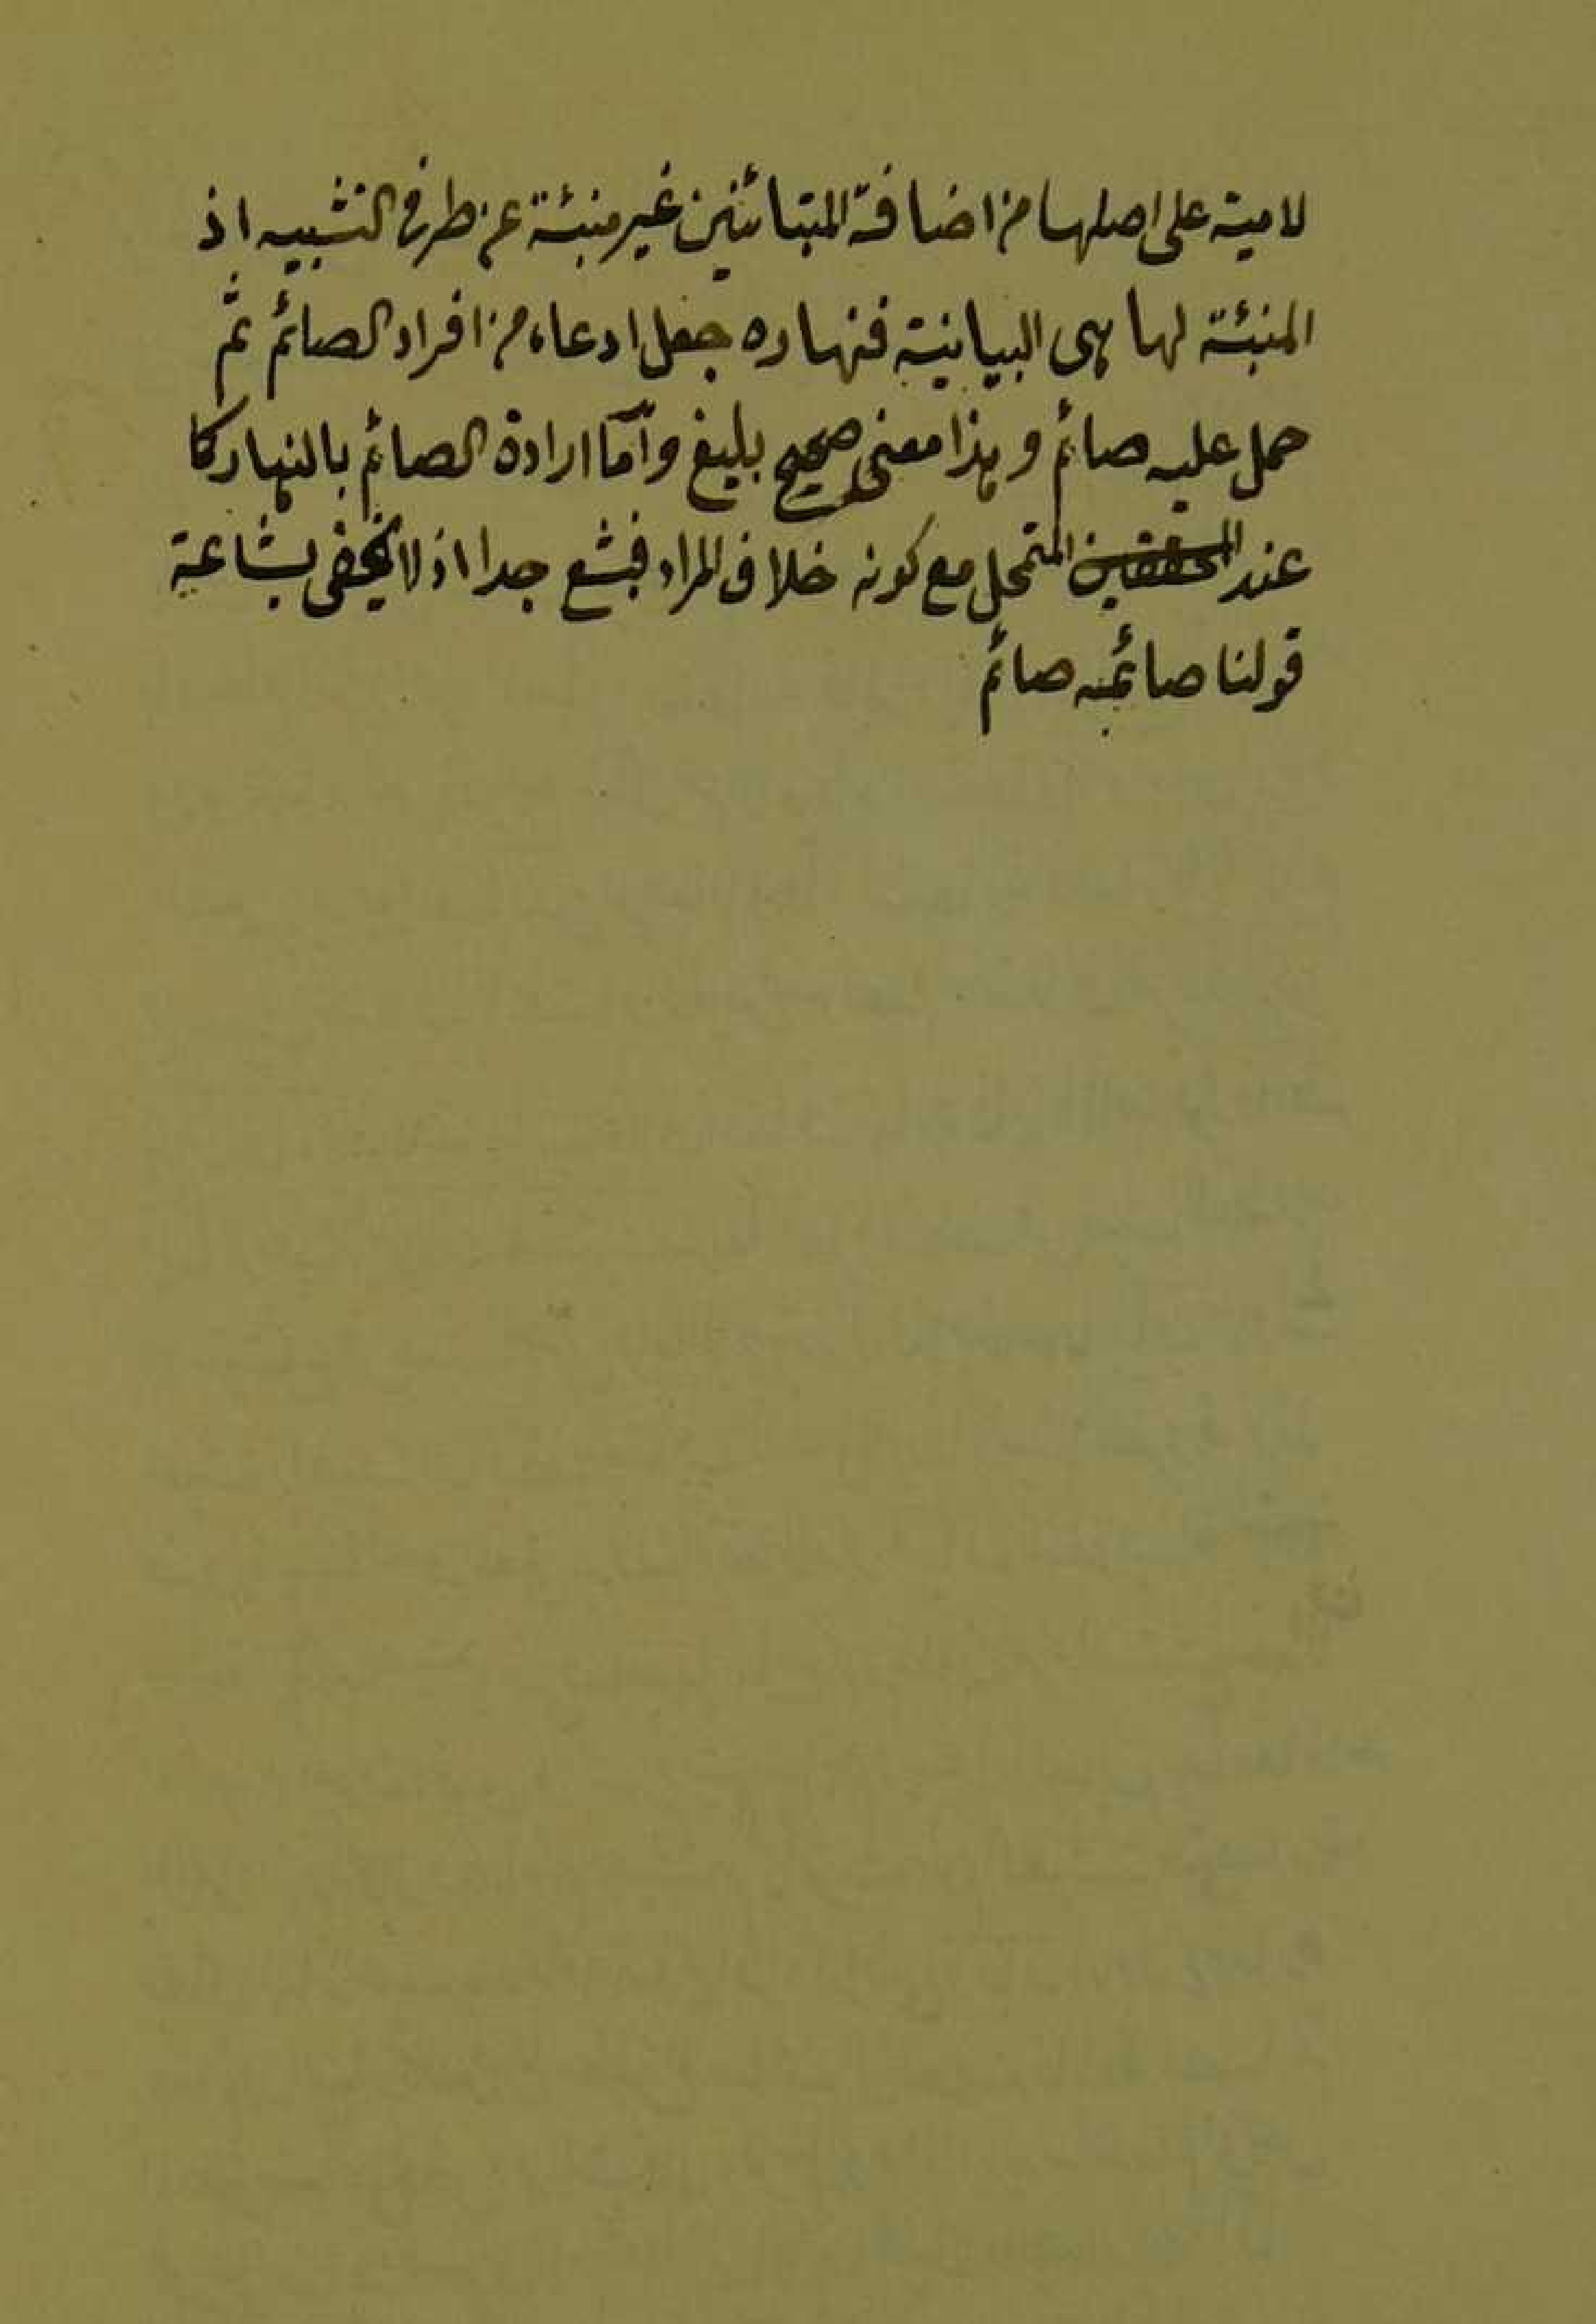 لامية على اصلها من اضافة المتبائنين غير منبئة عن طرفى التشبيه اذ
المنبئة لها هى البيانية فنهاره جعل ادعاء من افراد الصائم ثم
حمل عليه صائم وهذا معنى صحيح بليغ وأما ارادة الصائم بالنهار كما
عند المحققين المتمحل مع كونه خلاف المراد فبشع جدا اذ لا يخفى بشاعة
قولنا صائمه صائم